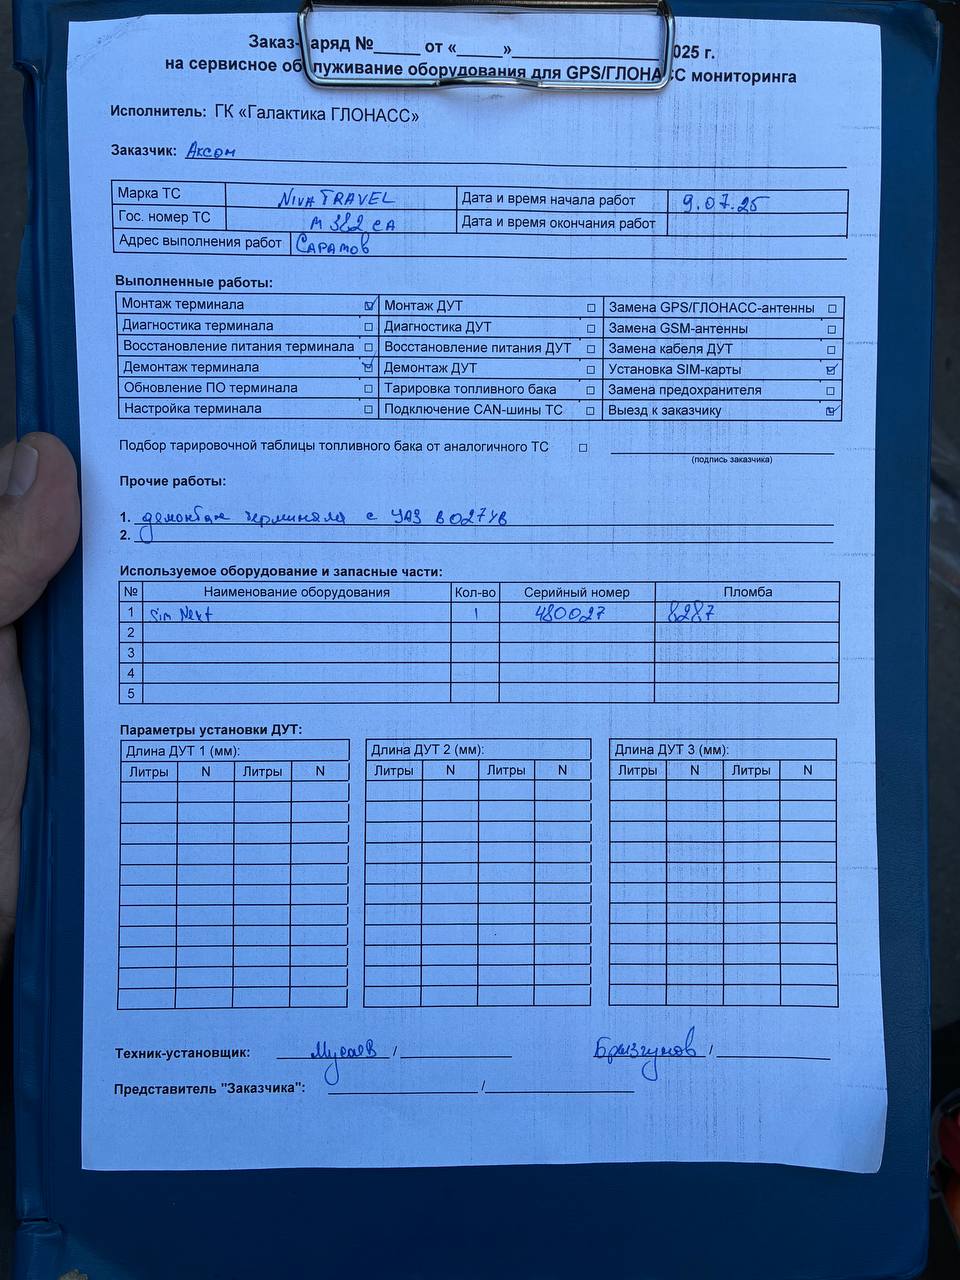 Заказ-наряд №_____ от «_____»________________ 2025 г.
на сервисное обслуживание оборудования для GPS/ГЛОНАСС мониторинга
Исполнитель: ГК «Галактика ГЛОНАСС»
Заказчик: Аксон
Марка ТС NIVA TRAVEL Дата и время начала работ 9.07.25
Гос. номер ТС М 382 СА Дата и время окончания работ
Адрес выполнения работ Саратов
Выполненные работы:
Монтаж терминала ☑ Монтаж ДУТ □ Замена GPS/ГЛОНАСС-антенны □
Диагностика терминала □ Диагностика ДУТ □ Замена GSM-антенны □
Восстановление питания терминала □ Восстановление питания ДУТ □ Замена кабеля ДУТ □
Демонтаж терминала ☑ Демонтаж ДУТ □ Установка SIM-карты ☑
Обновление ПО терминала □ Тарировка топливного бака □ Замена предохранителя □
Настройка терминала □ Подключение CAN-шины ТС □ Выезд к заказчику ☑
Подбор тарировочной таблицы топливного бака от аналогичного ТС □
(подпись заказчика)
Прочие работы:
1. демонтаж терминала с УАЗ В027УВ
2.
Используемое оборудование и запасные части:
№ Наименование оборудования Кол-во Серийный номер Пломба
1 Sim Next 1 480027 8287
2
3
4
5
Параметры установки ДУТ:
Длина ДУТ 1 (мм): Длина ДУТ 2 (мм): Длина ДУТ 3 (мм):
Литры N Литры N Литры N Литры N Литры N Литры N
Техник-установщик: Мусаев / Брызгунов /
Представитель "Заказчика": /